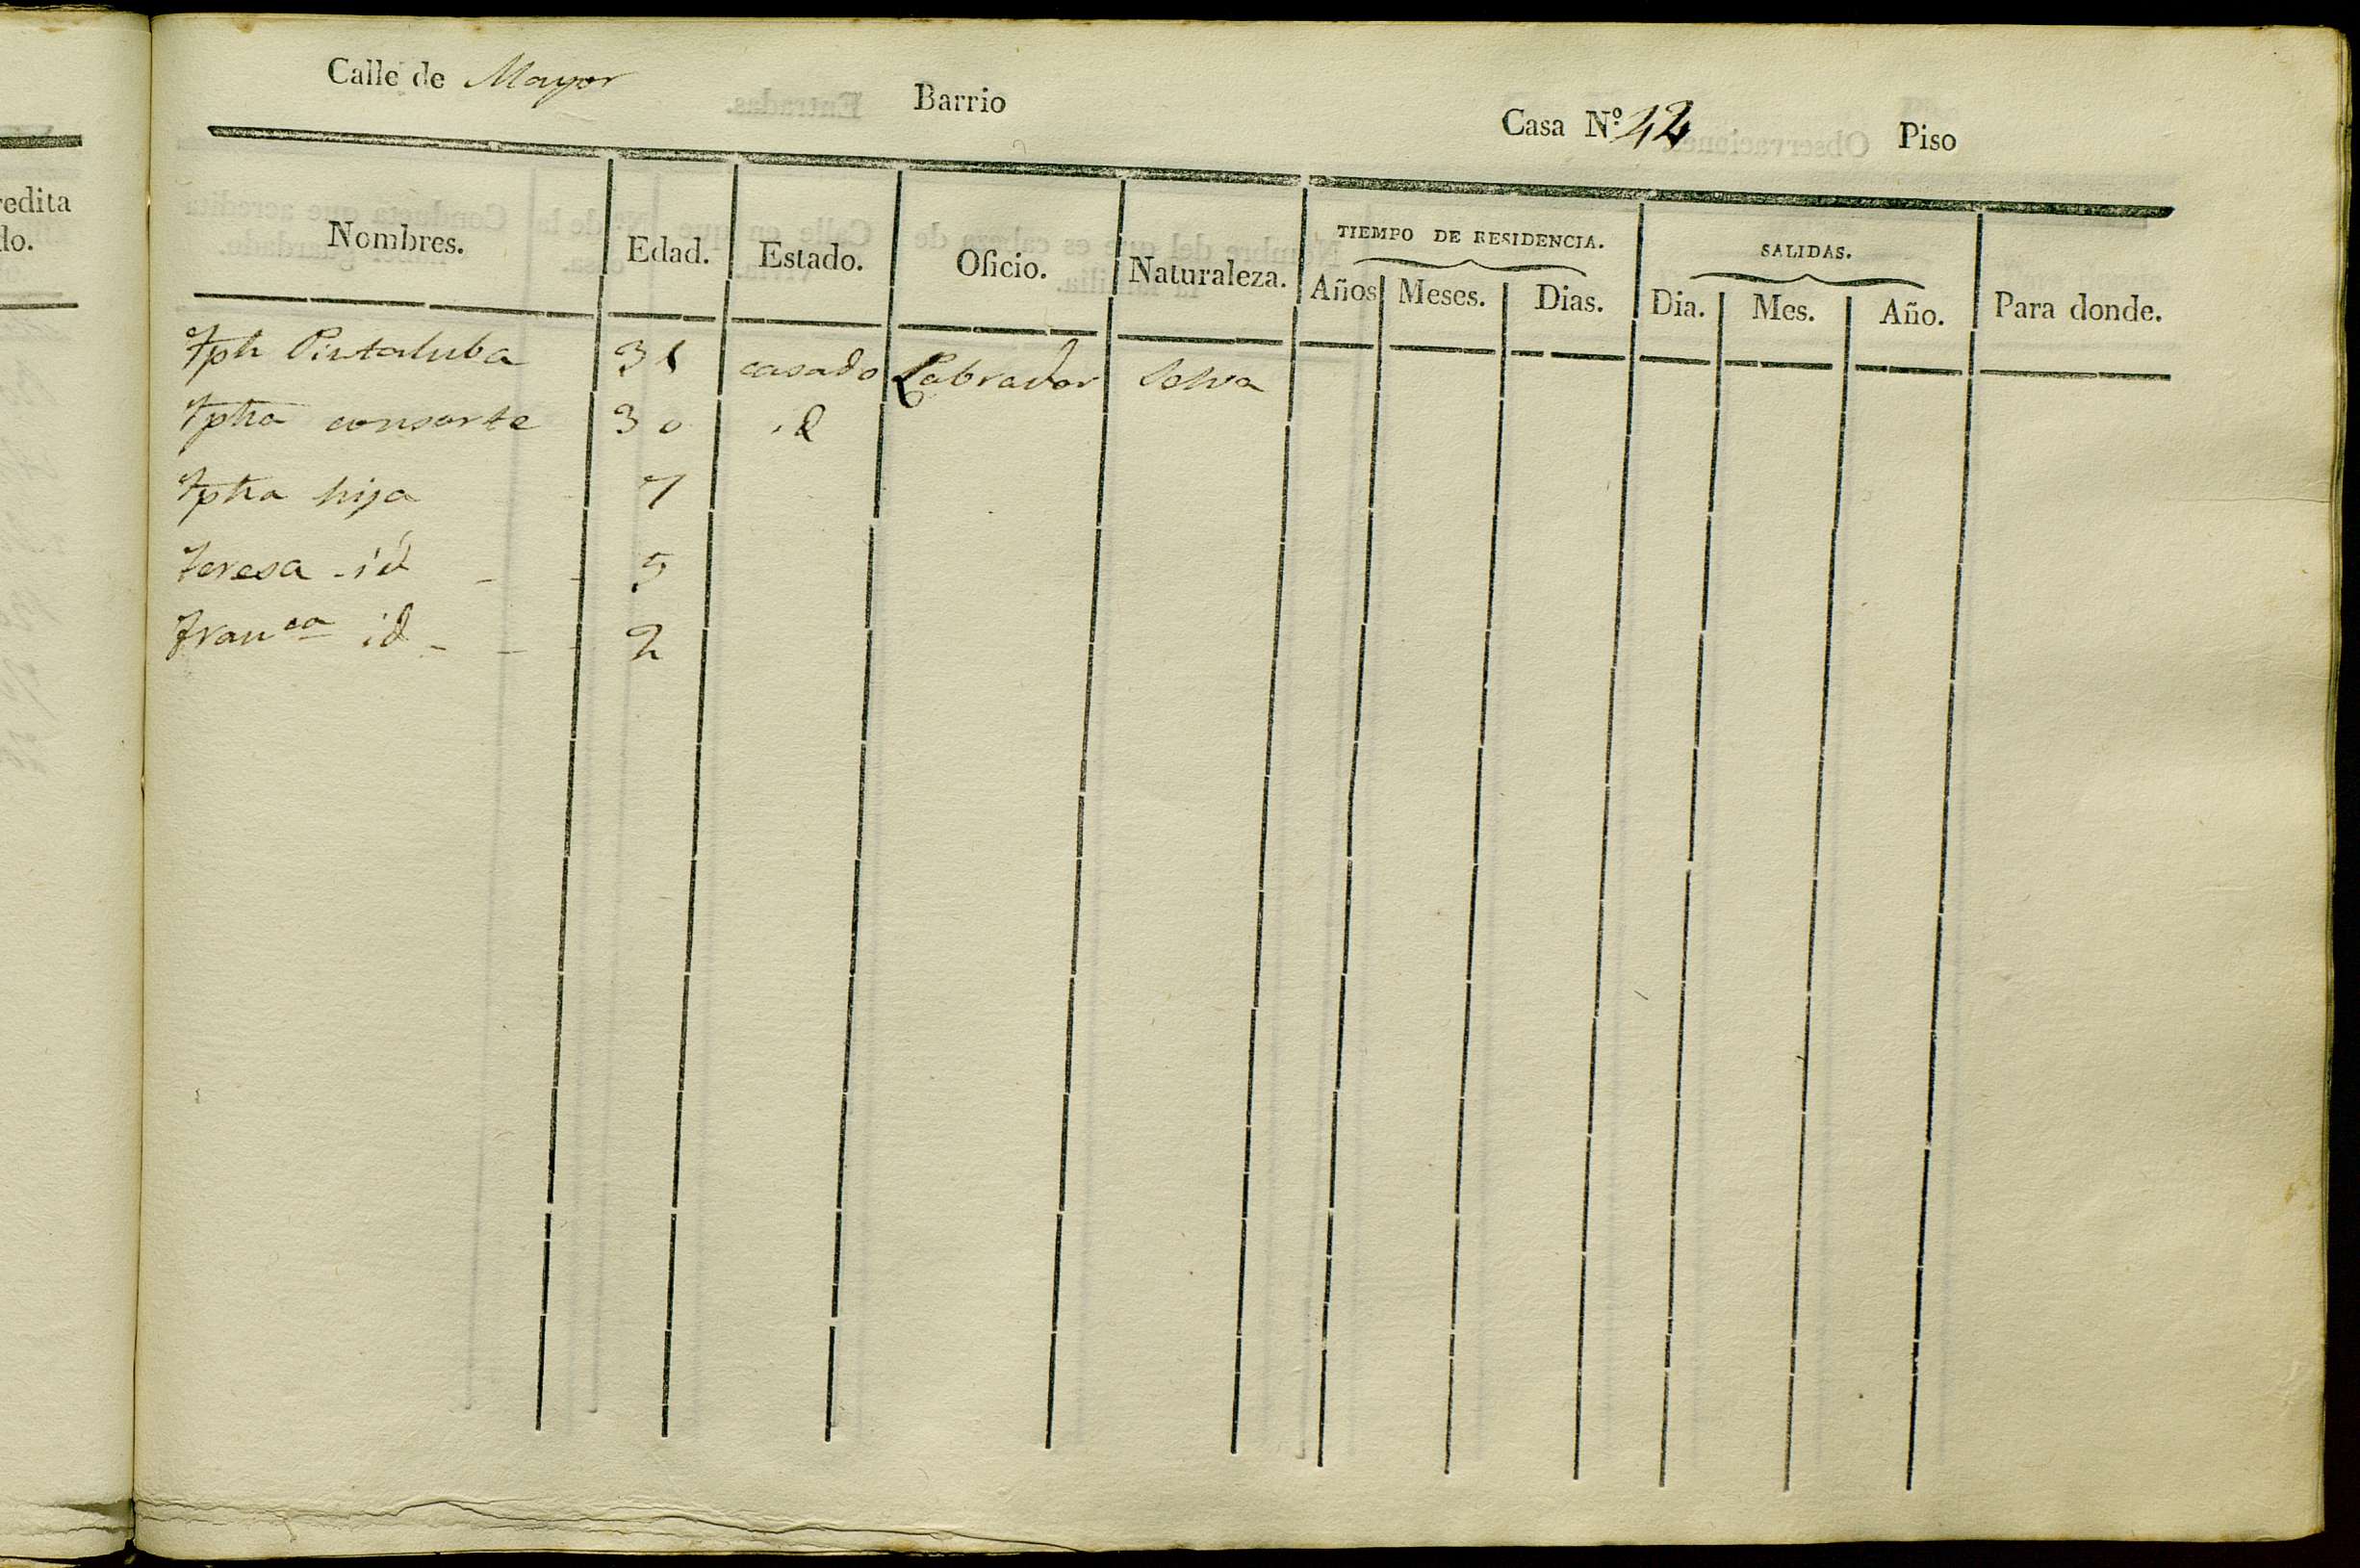 redita
do.
Calle de Mayor Barrio Casa N.º 42 Piso
Nombres. Edad. Estado. Oficio. Naturaleza. TIEMPO DE RESIDENCIA. SALIDAS. Para donde.
Años Meses. Dias. Dia. Mes. Año.
Jph Pintaluba 31 casado Labrador Selva
Jpha consorte 30 id
Jpha hija 7
Teresa id 5
Franca id 2